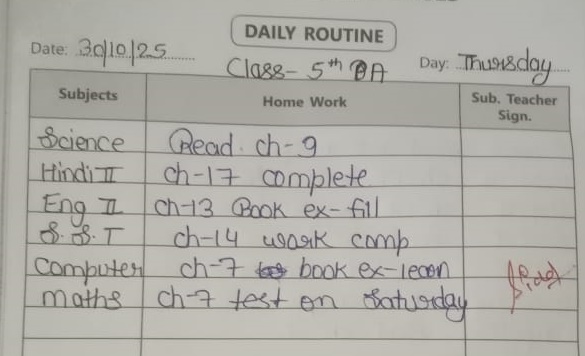 DAILY ROUTINE
Date: 30/10/25 Day: Thursday
Class- 5th A
Subjects Home Work Sub. Teacher Sign.
Science Read ch-9
Hindi II ch-17 complete
Eng II ch-13 Book ex-fill
S.S.T ch-14 work comp
Computer ch-7 book ex-learn
maths ch-7 test on Saturday